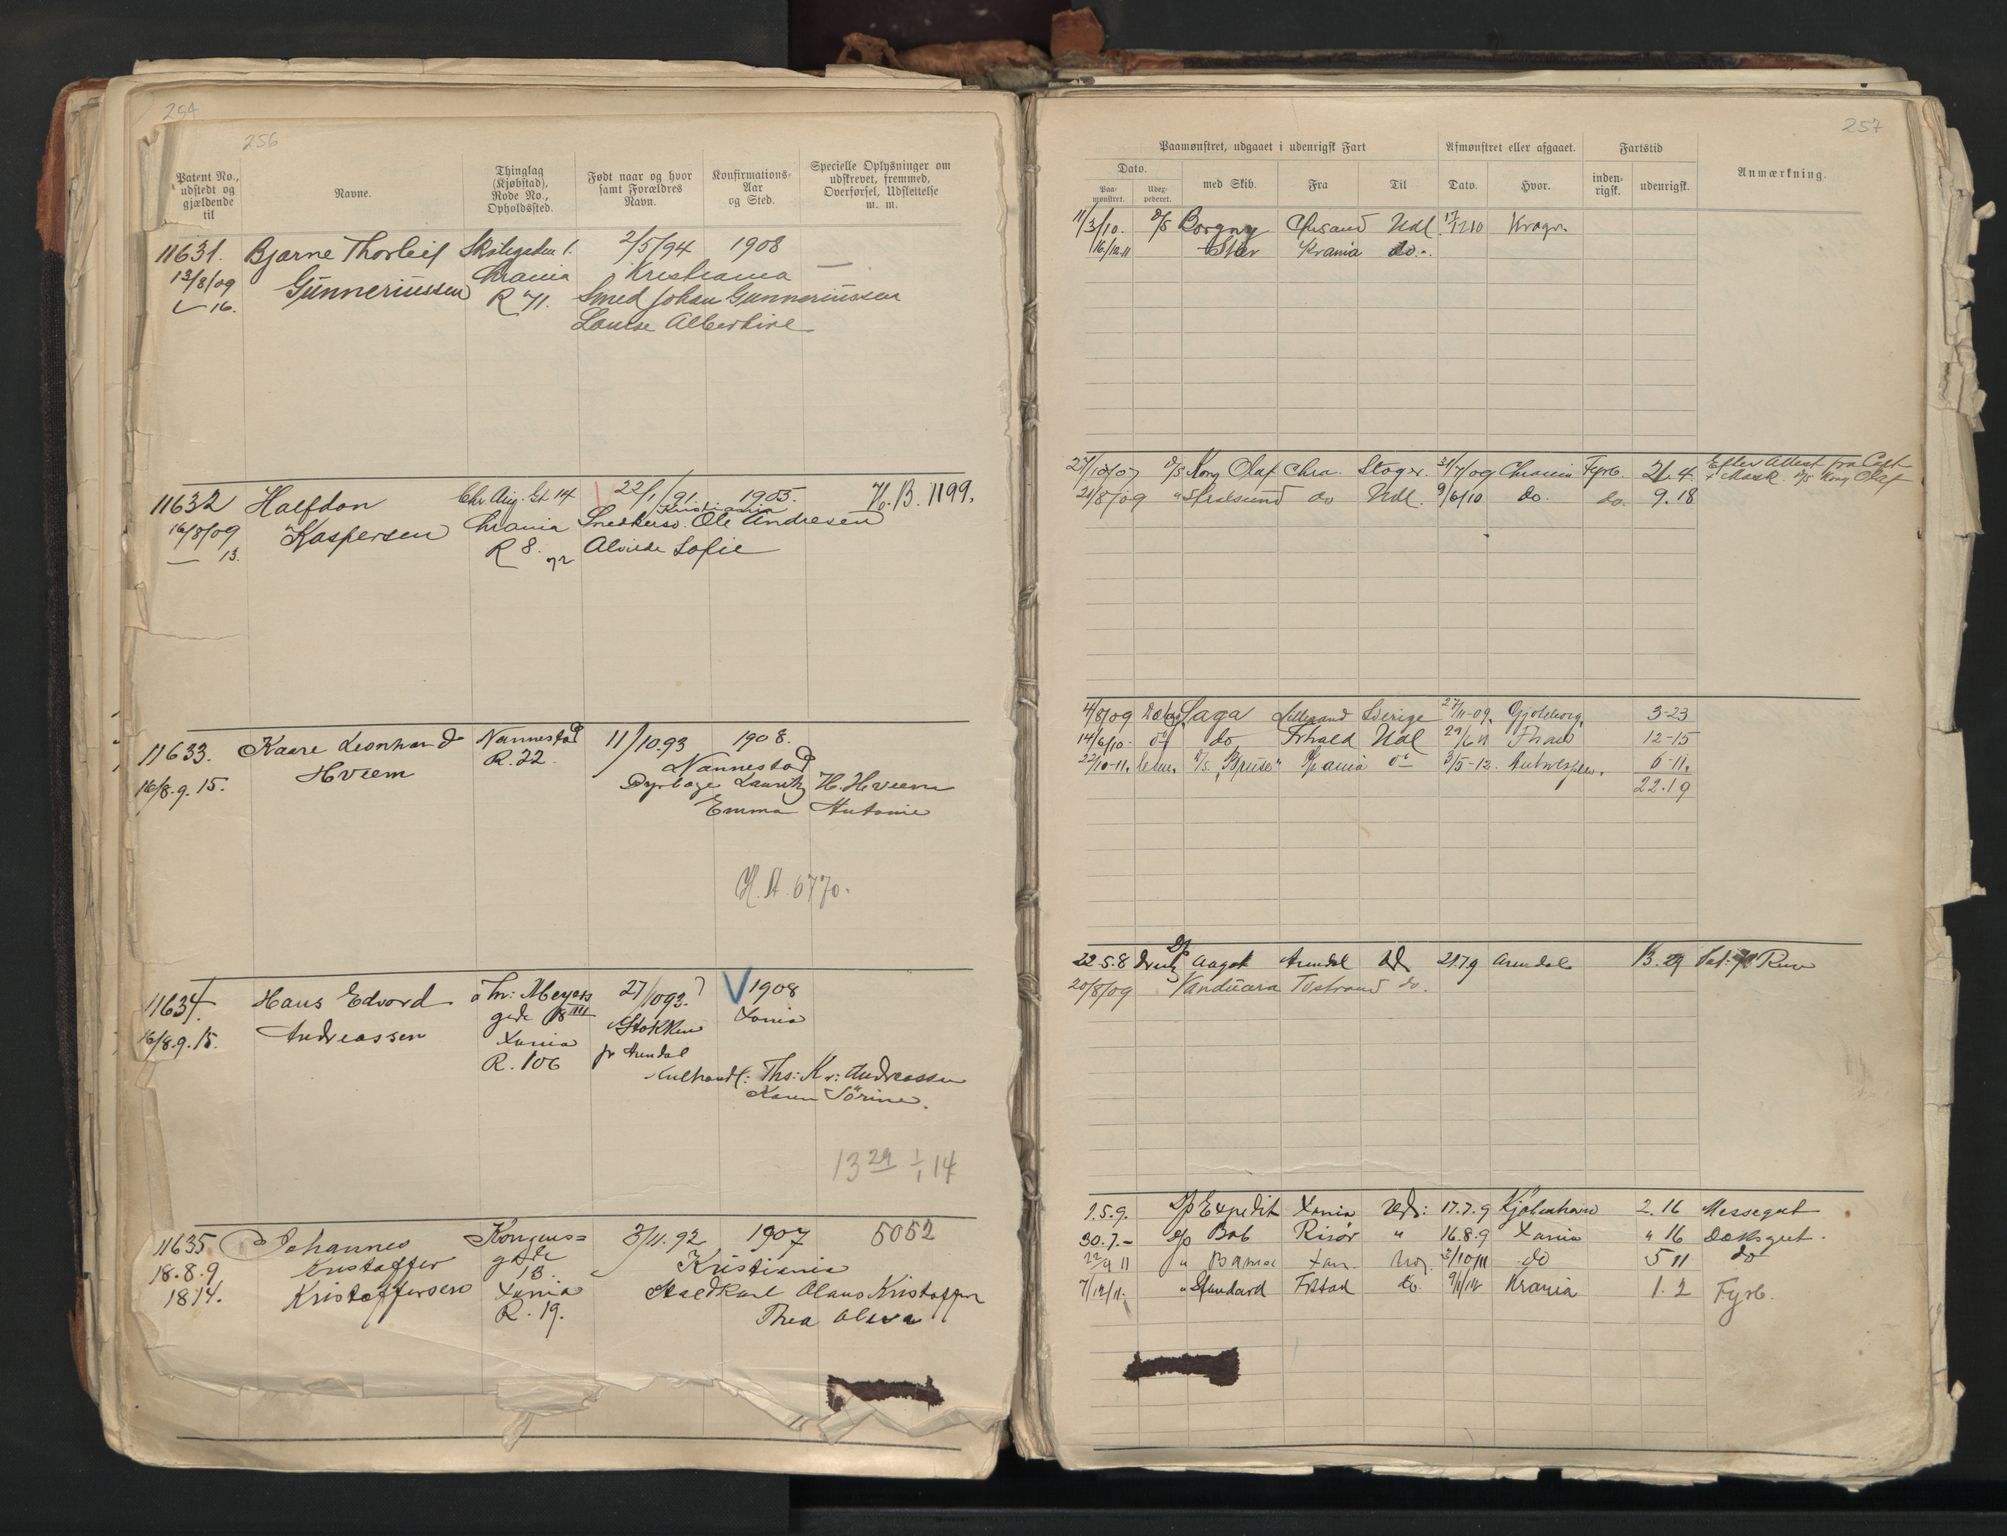 254
256
Patent No., udstedt og gjældende til
Navne.
Thinglag (Kjøbstad), Rode No., Opholdssted.
Født naar og hvor samt Forældres Navn.
Konfirmations-Aar og Sted.
Specielle Oplysninger om udskrevet, fremmed, Overførsel, Udslettelse m. m.
11631. Bjarne Thorleif 2/5/94 1908
13/8/09 Gunneriussen Krania Kristiania —
— 16. R 71. Smed Johan Gunneriussen
Louise Albertine
11632 Halfdan Chr. Aug. Gt 14 22/1/91. 1905. B. 1199.
Kristiania
16/8/09 Kaspersen Krania Ole Andresen
— 13. R 8. Alvilde Sofie
11633. Kaare Leonhard Nannestad 11/10.93 1908.
Hveem R. 22. Nannestad
16/8.9.15. Lauritz H. Hveem
Emma Antonie
H. A. 6770.
11634. Hans Edvard Th: Meyers 27/1093. V 1908
Andreassen gade Stokken Xania
16/8.9.15. Xania pr Arendal
R. 106 Kulhandl: Ths: Kr: Andreassen
Karen Sörine.
13 29 1/1 14
11635 Johannes Kongens= 3/11.92 1907 5052
18.8.9 Kristoffer gade 13. Kristiania
1814. Kristoffersen Xania Staldkarl Olaus Kristoffer
R. 19. Thea Olava
257
Paamønstret, udgaaet i udenrigsk Fart
Afmønstret eller afgaaet.
Fartstid
Anmærkning.
Dato.
Paamønstret.
Udexpederet.
med Skib.
Fra
Til
Dato.
Hvor.
indenrigsk.
udenrigsk.
11/3/10. D/S Borgny Chrsand Udl. Kragø
16/12.11 Ster Krania do.
27/10/07 D/S Kong Olaf Chra. 31/7/09 Chrania Fyrb. 21.4 Efter Attest fra Capt
D/S Kong Olaf
21/8/09 " Stralsund do Udl. 9/6/10 do. do. 9.18
4/8/09 Saga Lillesand Sverige 27/11-09. 3-23
14/6/10. do do Frhald Udl 29/6 11 Frhald 12-15
22/10-11. D/S. "Bruse" Xrania do 3/5-12. Antwerpen. 6-11.
22.19
22.5.8 D/S Aagot Arendal Uds 21.7.9 Arendal 13.29
20/8/09 Vanduara Tostrand do.
1.5.9. D/S Expedit Xania Uds: 17.7.9 Kjøbenhavn 2.16 Messegut
30.7.- D/S Bob Risör " 16.8.9 Xania " 16 Dæksgut.
22/9 11 " Bamse Xan. 3/10/11 do 5 11 do
7/12/11. " Standard Frstad do. 9/1/12 Krania 1. 2 Fyrb.